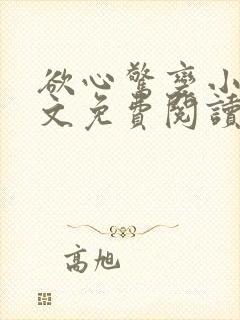 欲心驚變小
文免費閱讀
高旭